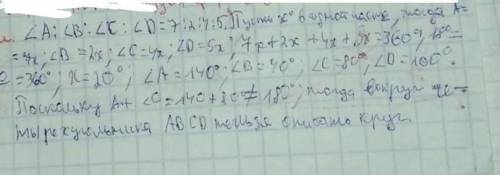 ∠A:∠B:∠C:∠D=7:2:4:5. Пусть x° в одной части, тогда A=
=7x; ∠B=2x; ∠C=4x, ∠D=5x; 7x+2x+4x+5x=360°, 18x=
=360°; x=20°; ∠A=140°; ∠B=40°; ∠C=80°, ∠D=100°.
Поскольку A+∠C=140+80≠180°; тогда вокруг че-
тырехугольника ABCD нельзя описать круг.